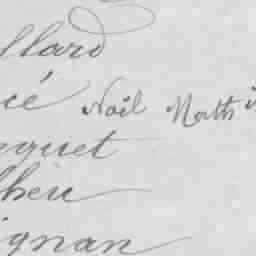 llard
cé Noël Math
quet
lheu
ignan